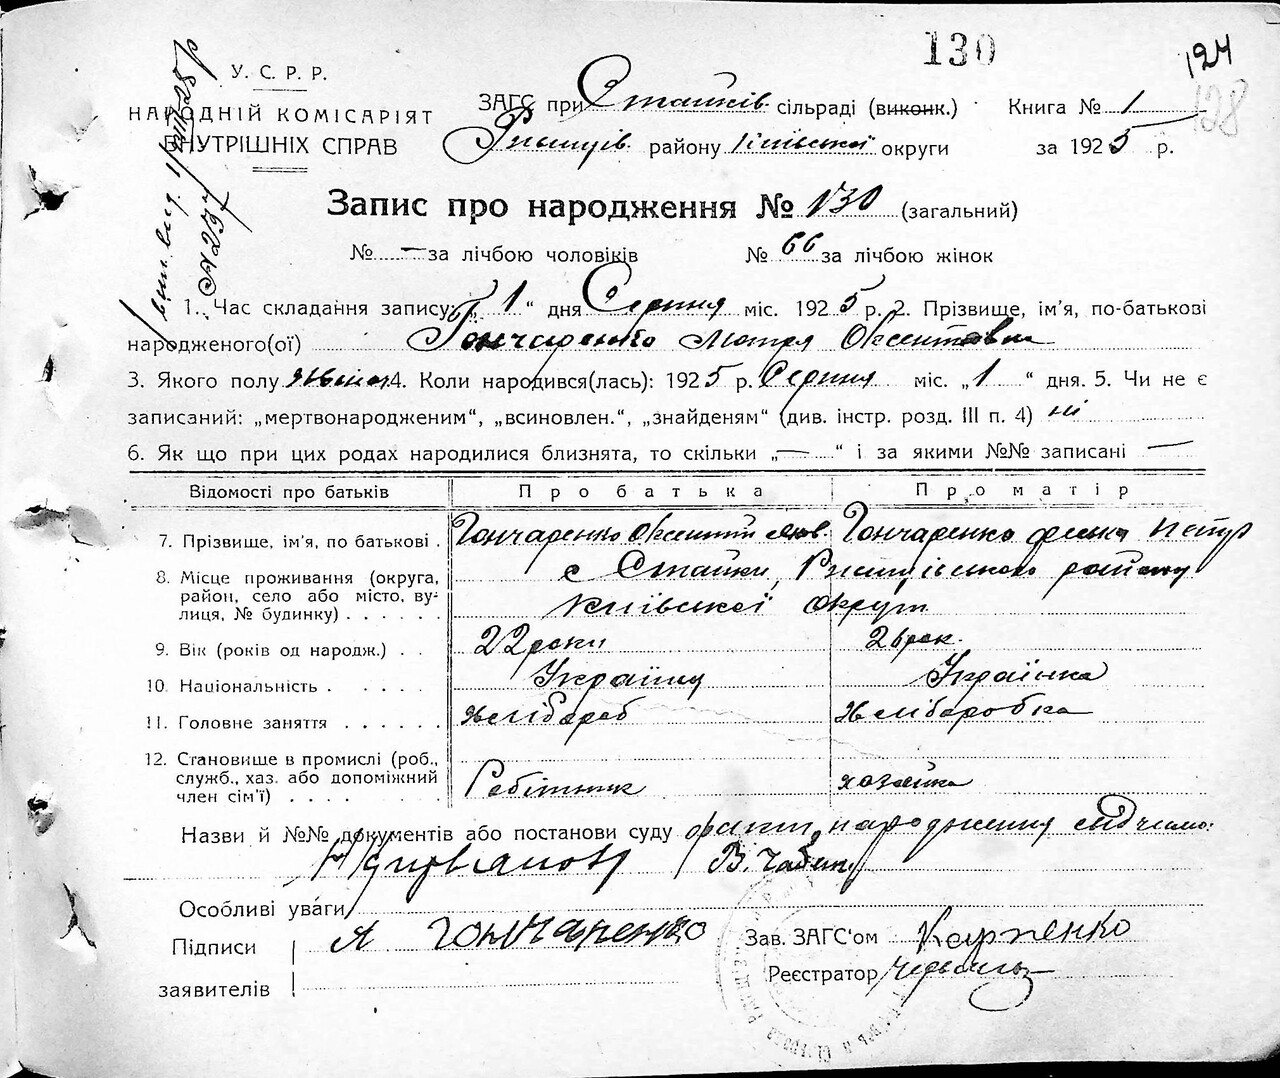 130
124
128
У. С. Р. Р.
НАРОДНІЙ КОМІСАРІЯТ
ВНУТРІШНІХ СПРАВ
ЗАГС при Стайків. сільраді (виконк.)
Ржищів. району Київської округи
Книга № 1
за 1925 р.
Запис про народження № 130 (загальний)
№ — за лічбою чоловіків № 66 за лічбою жінок
1. Час складання запису: „1“ дня Серпня міс. 1925 р. 2. Прізвище, ім'я, по-батькові
народженого(ої) Гончаренко Мотря Оксентовна
3. Якого полу жіноч. 4. Коли народився(лась): 1925 р. Серпня міс. „1“ дня. 5. Чи не є
записаний: „мертвонародженим“, „всиновлен.“, „знайденям“ (див. інстр. розд. III п. 4) ні
6. Як що при цих родах народилися близнята, то скільки „—“ і за якими №№ записані —
Відомості про батьків Про батька Про матір
7. Прізвище, ім'я, по батькові . Гончаренко Оксентий Гончаренко Петр
8. Місце проживання (округа, район, село або місто, вулиця, № будинку) . . . . . . с Стайки, Ржищівського району
Київської округи
9. Вік (років од народж.) . . 22 роки 26 рок.
10. Національність . . . . . Українц Українка
11. Головне заняття . . . . . . Хлібороб Хліборобка
12. Становище в промислі (роб., служб., хаз. або допоміжний член сім'ї) . . . . Робітник хозяйка
Назви й №№ документів або постанови суду факт народження свідчимо:
В. Чабан
Особливі уваги
Підписи заявителів Я Гончаренко
Зав. ЗАГС'ом Карпенко
Реєстратор